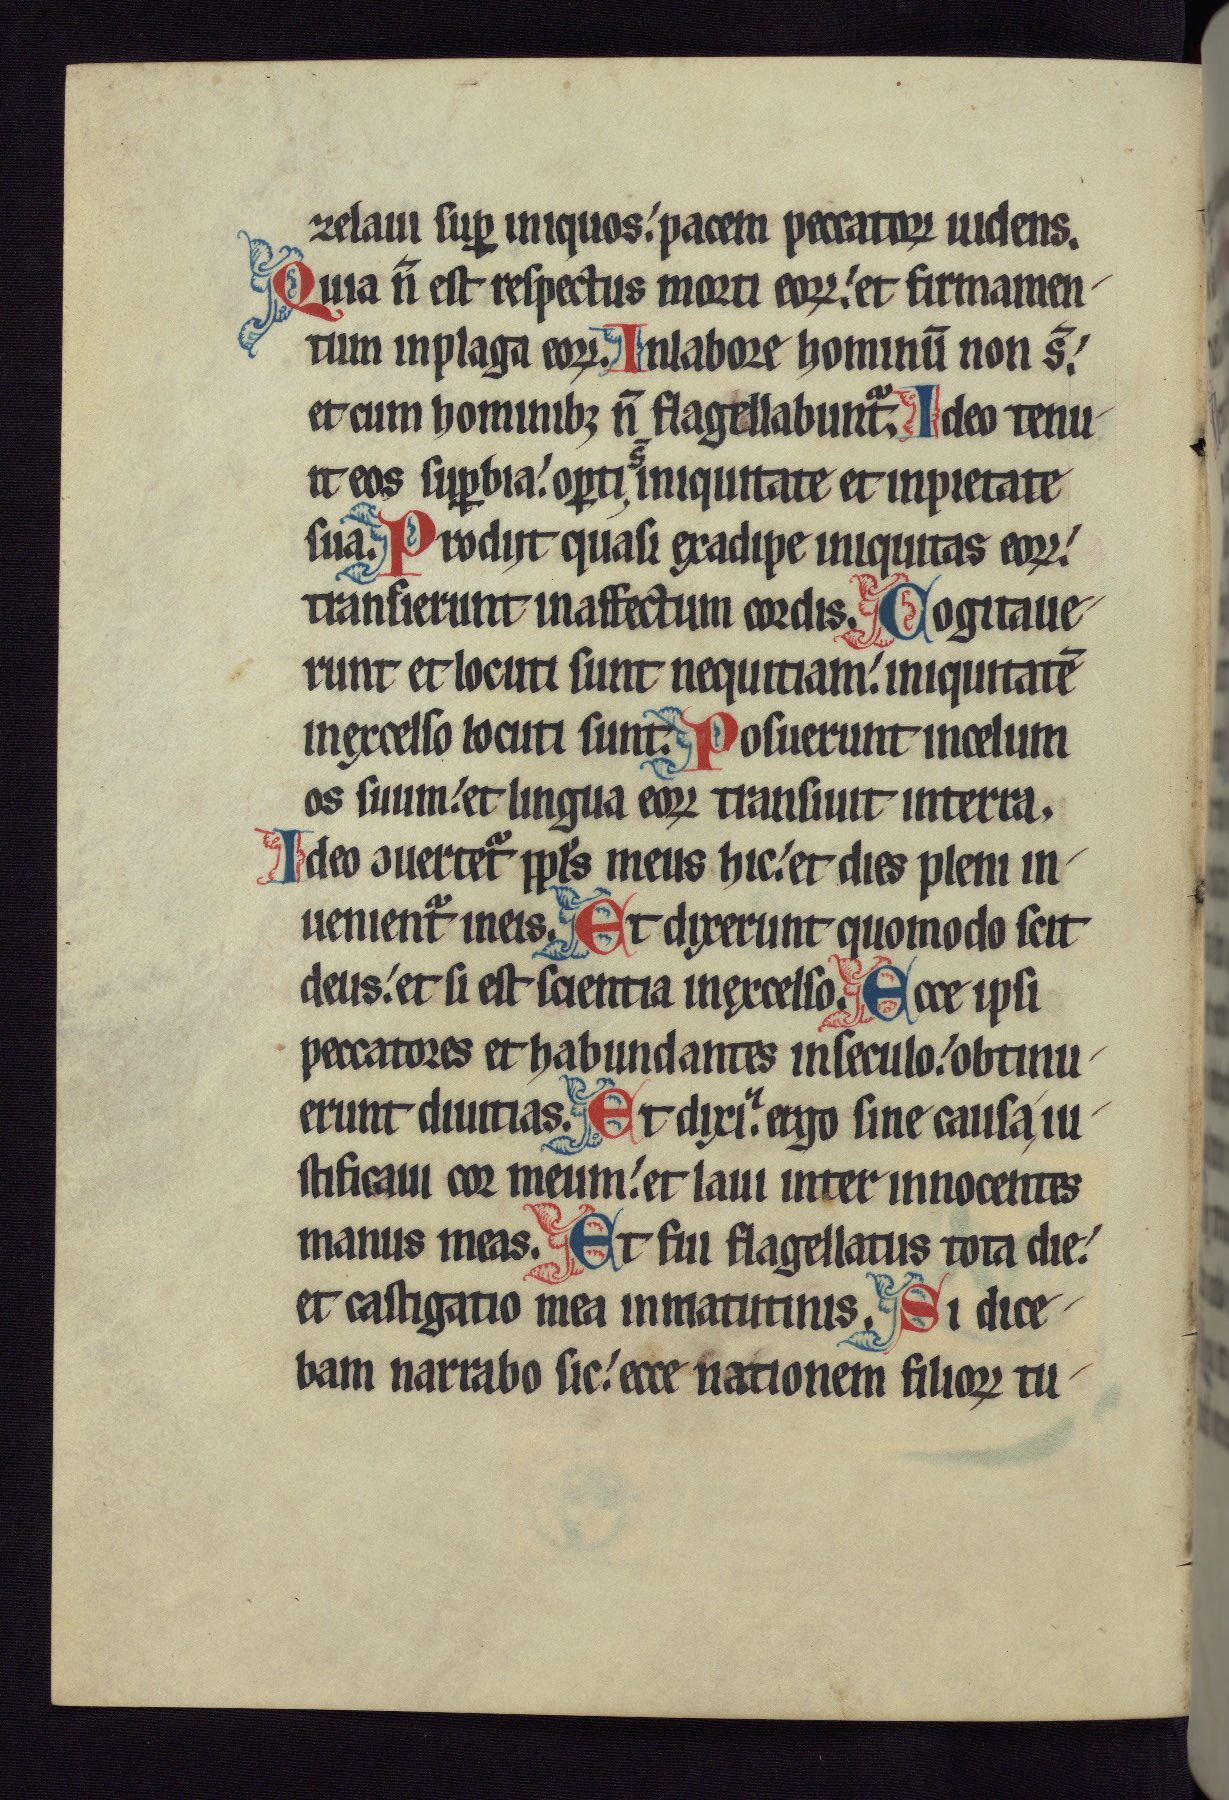 zelaui suꝑ iniquos: pacem peccatoꝝ uidens.
Quia n̄ est respectus morti eoꝝ: et firmamen-
tum inplaga eoꝝ. Inlabore hominū non s̄:
et cum hominibꝫ n̄ flagellabunt᷑. Ideo tenu-
it eos suꝑbia: oꝑti s̄ iniquitate et inpietate
sua. Prodijt quasi exadipe iniquitas eoꝝ:
transierunt inaffectum cordis. Cogitaue-
runt et locuti sunt nequitiam: iniquitatē
inexcelso locuti sunt. Posuerunt incelum
os suum: et lingua eoꝝ transiuit interra.
Ideo ↄuertet᷑ ppl̄s meus hic: et dies pleni in-
uenient᷑ ineis. Et dixerunt quomodo scit
deus: et si est scientia inexcelso. Ecce ipsi
peccatores et habundantes inseculo: obtinu-
erunt diuitias. Et dixi: ergo sine causa iu-
stificaui cor meum: et laui inter innocentes
manus meas. Et fui flagellatus tota die:
et castigatio mea inmatutinis. Si dice-
bam narrabo sic: ecce nationem filioꝝ tu-